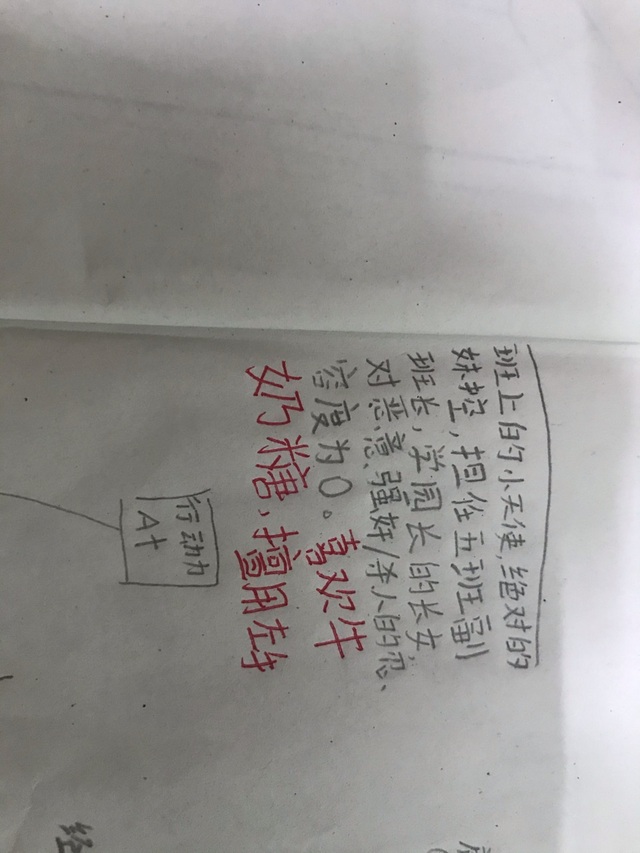 班上的小天使,绝对的
妹控,担任五班副
班长,学园长的长女,
对恶意、强奸/杀人的忍、
容度为0。喜欢牛
奶糖,擅用左手
行动力
A+
经